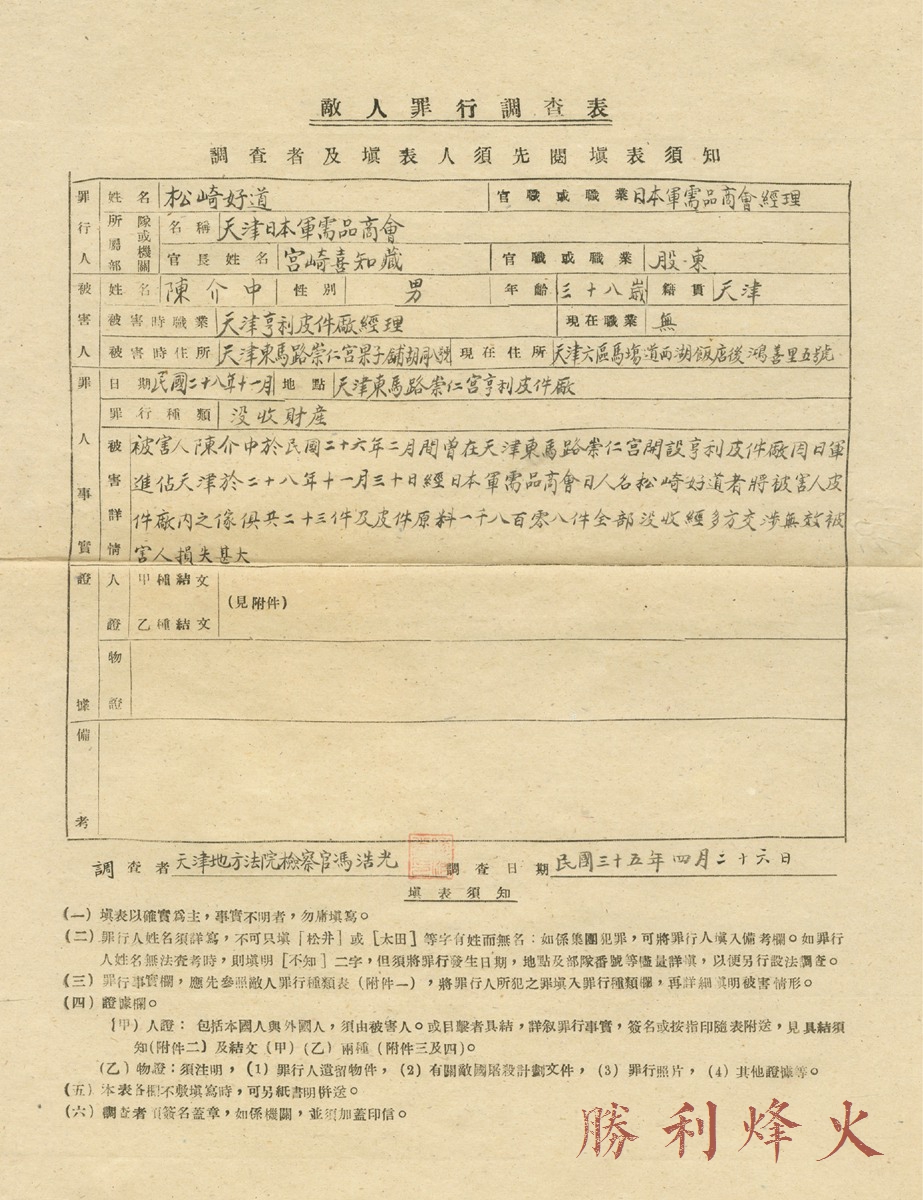 敵人罪行調查表
調查者及塡表人須先閱塡表須知
罪行人 姓名 松崎好道 官職或職業 日本軍需品商會經理
所屬部隊或機關 名稱 天津日本軍需品商會
官長姓名 宮崎喜知藏 官職或職業 股東
被害人 姓名 陳介中 性別 男 年齡 三十八歲 籍貫 天津
被害時職業 天津亨利皮件廠經理 現在職業 無
被害時住所 天津東馬路崇仁宮景子舖胡同八號 現在住所 天津六區馬塲道西湖飯店後鴻喜里五號
罪人事實 日期 民國二十八年十一月 地點 天津東馬路崇仁宮亨利皮件廠
罪行種類 没收財產
被害詳情 被害人陳介中於民國二十六年二月間曾在天津東馬路崇仁宮開設亨利皮件廠因日軍
進佔天津於二十八年十一月三十日經日本軍需品商會日人名松崎好道者將被害人皮
件廠內之傢俱共二十三件及皮件原料一千八百零八件全部没收經多方交涉無效被
害人損失甚大
證據 人證 甲種結文
(見附件)
乙種結文
物證
備考
調查者 天津地方法院檢察官馮浩光 調查日期 民國三十五年四月二十六日
塡表須知
(一)塡表以確實爲主,事實不明者,勿庸塡寫。
(二)罪行人姓名須詳寫,不可只塡「松井」或「太田」等字有姓而無名:如係集團犯罪,可將罪行人塡入備考欄。如罪行
人姓名無法查考時,則塡明「不知」二字,但須將罪行發生日期,地點及部隊番號等儘量詳塡,以便另行設法調查。
(三)罪行事實欄,應先參照敵人罪行種類表(附件一),將罪行人所犯之罪塡入罪行種類欄,再詳細塡明被害情形。
(四)證據欄。
(甲)人證:包括本國人與外國人,須由被害人。或目擊者具結,詳敘罪行事實,簽名或按指印隨表附送,見具結須
知(附件二)及結文(甲)(乙)兩種(附件三及四)。
(乙)物證:須注明,(1)罪行人遺留物件,(2)有關敵國屠殺計劃文件,(3)罪行照片,(4)其他證據等。
(五)本表各欄不敷塡寫時,可另紙書明併送。
(六)調查者須簽名蓋章,如係機關,並須加蓋印信。
勝利烽火